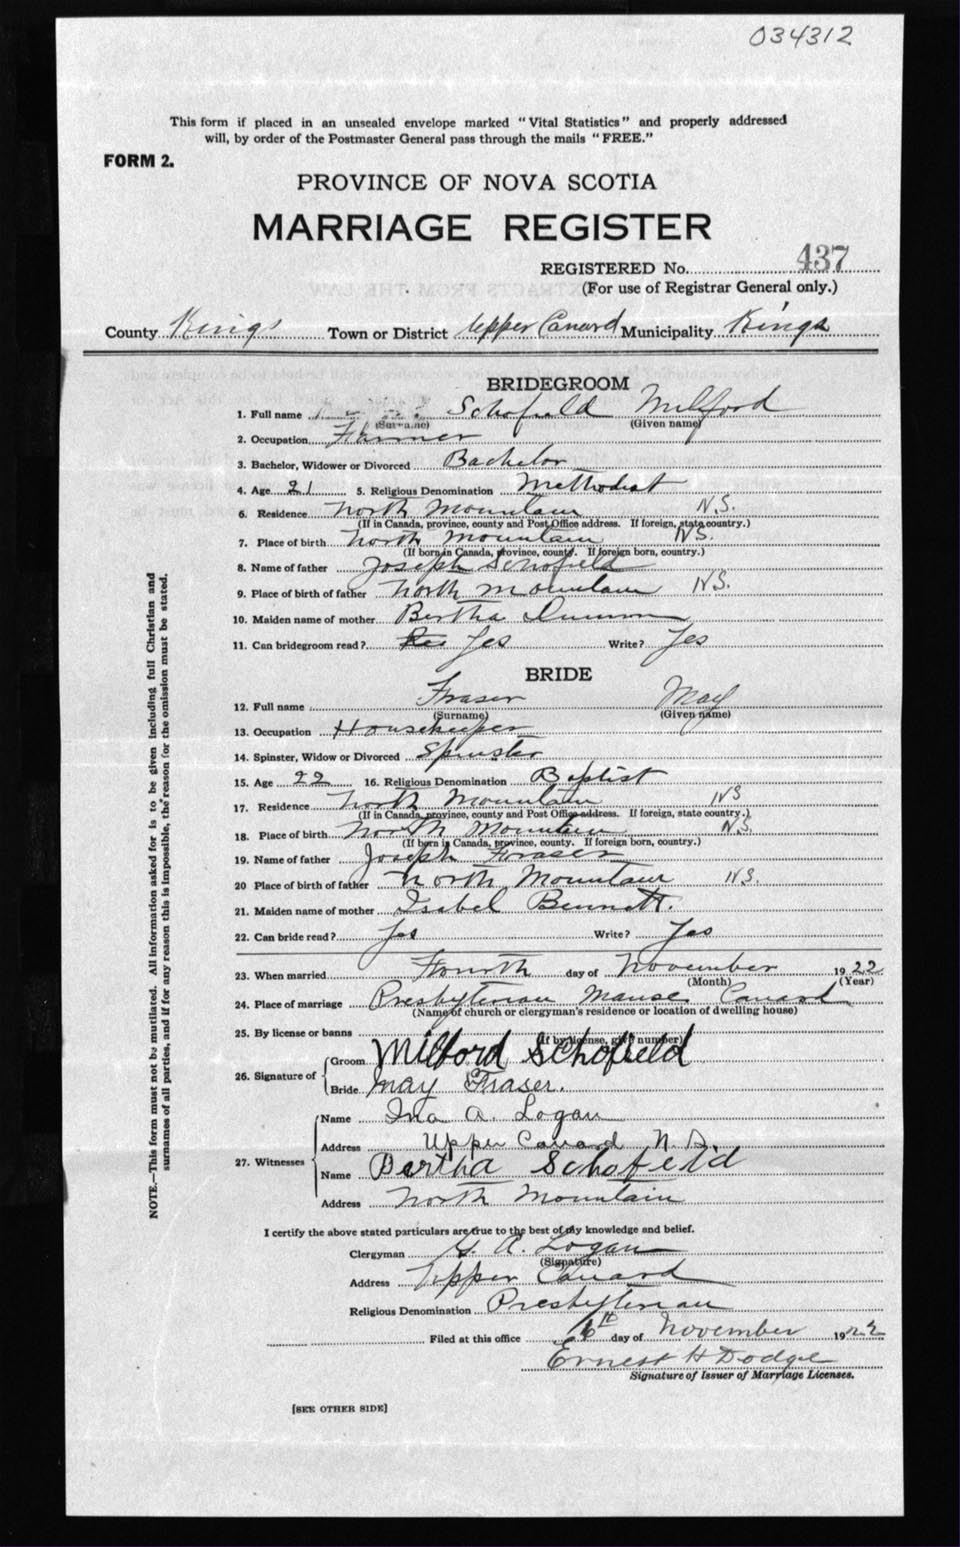 034312
This form if placed in an unsealed envelope marked "Vital Statistics" and properly addressed
will, by order of the Postmaster General pass through the mails "FREE."
FORM 2.
PROVINCE OF NOVA SCOTIA
MARRIAGE REGISTER
REGISTERED No. 437
(For use of Registrar General only.)
County Kings Town or District Upper Canard Municipality Kings
BRIDEGROOM
1. Full name Schofield Milford
(Surname) (Given name)
2. Occupation Farmer
3. Bachelor, Widower or Divorced Bachelor
4. Age 21 5. Religious Denomination Methodist
6. Residence North Mountain N.S.
(If in Canada, province, county and Post Office address. If foreign, state country.)
7. Place of birth North Mountain N.S.
(If born in Canada, province, county. If foreign born, country.)
8. Name of father Joseph Schofield
9. Place of birth of father North Mountain N.S.
10. Maiden name of mother Bertha
11. Can bridegroom read? Yes Write? Yes
BRIDE
12. Full name Fraser May
(Surname) (Given name)
13. Occupation Housekeeper
14. Spinster, Widow or Divorced Spinster
15. Age 22 16. Religious Denomination Baptist
17. Residence North Mountain NS
(If in Canada, province, county and Post Office address. If foreign, state country.)
18. Place of birth North Mountain N.S.
(If born in Canada, province, county. If foreign born, country.)
19. Name of father Joseph Fraser
20 Place of birth of father North Mountain N.S.
21. Maiden name of mother Isabel Bennett.
22. Can bride read? Yes Write? Yes
23. When married Fourth day of November 1922
(Month) (Year)
24. Place of marriage Presbyterian Manse Canard
(Name of church or clergyman's residence or location of dwelling house)
25. By license or banns
(If by license, give number)
26. Signature of Groom Milford Schofield
Bride May Fraser.
27. Witnesses Name Ina A. Logan
Address Upper Canard N.S.
Name Bertha Schofield
Address North Mountain
I certify the above stated particulars are true to the best of my knowledge and belief.
Clergyman G. A. Logan
(Signature)
Address Upper Canard
Religious Denomination Presbyterian
Filed at this office 6th day of November 1922
Ernest H Dodge
Signature of Issuer of Marriage Licenses.
[SEE OTHER SIDE]
NOTE.—This form must not be mutilated. All information asked for is to be given including full Christian and
surnames of all parties, and if for any reason this is impossible, the reason for the omission must be stated.